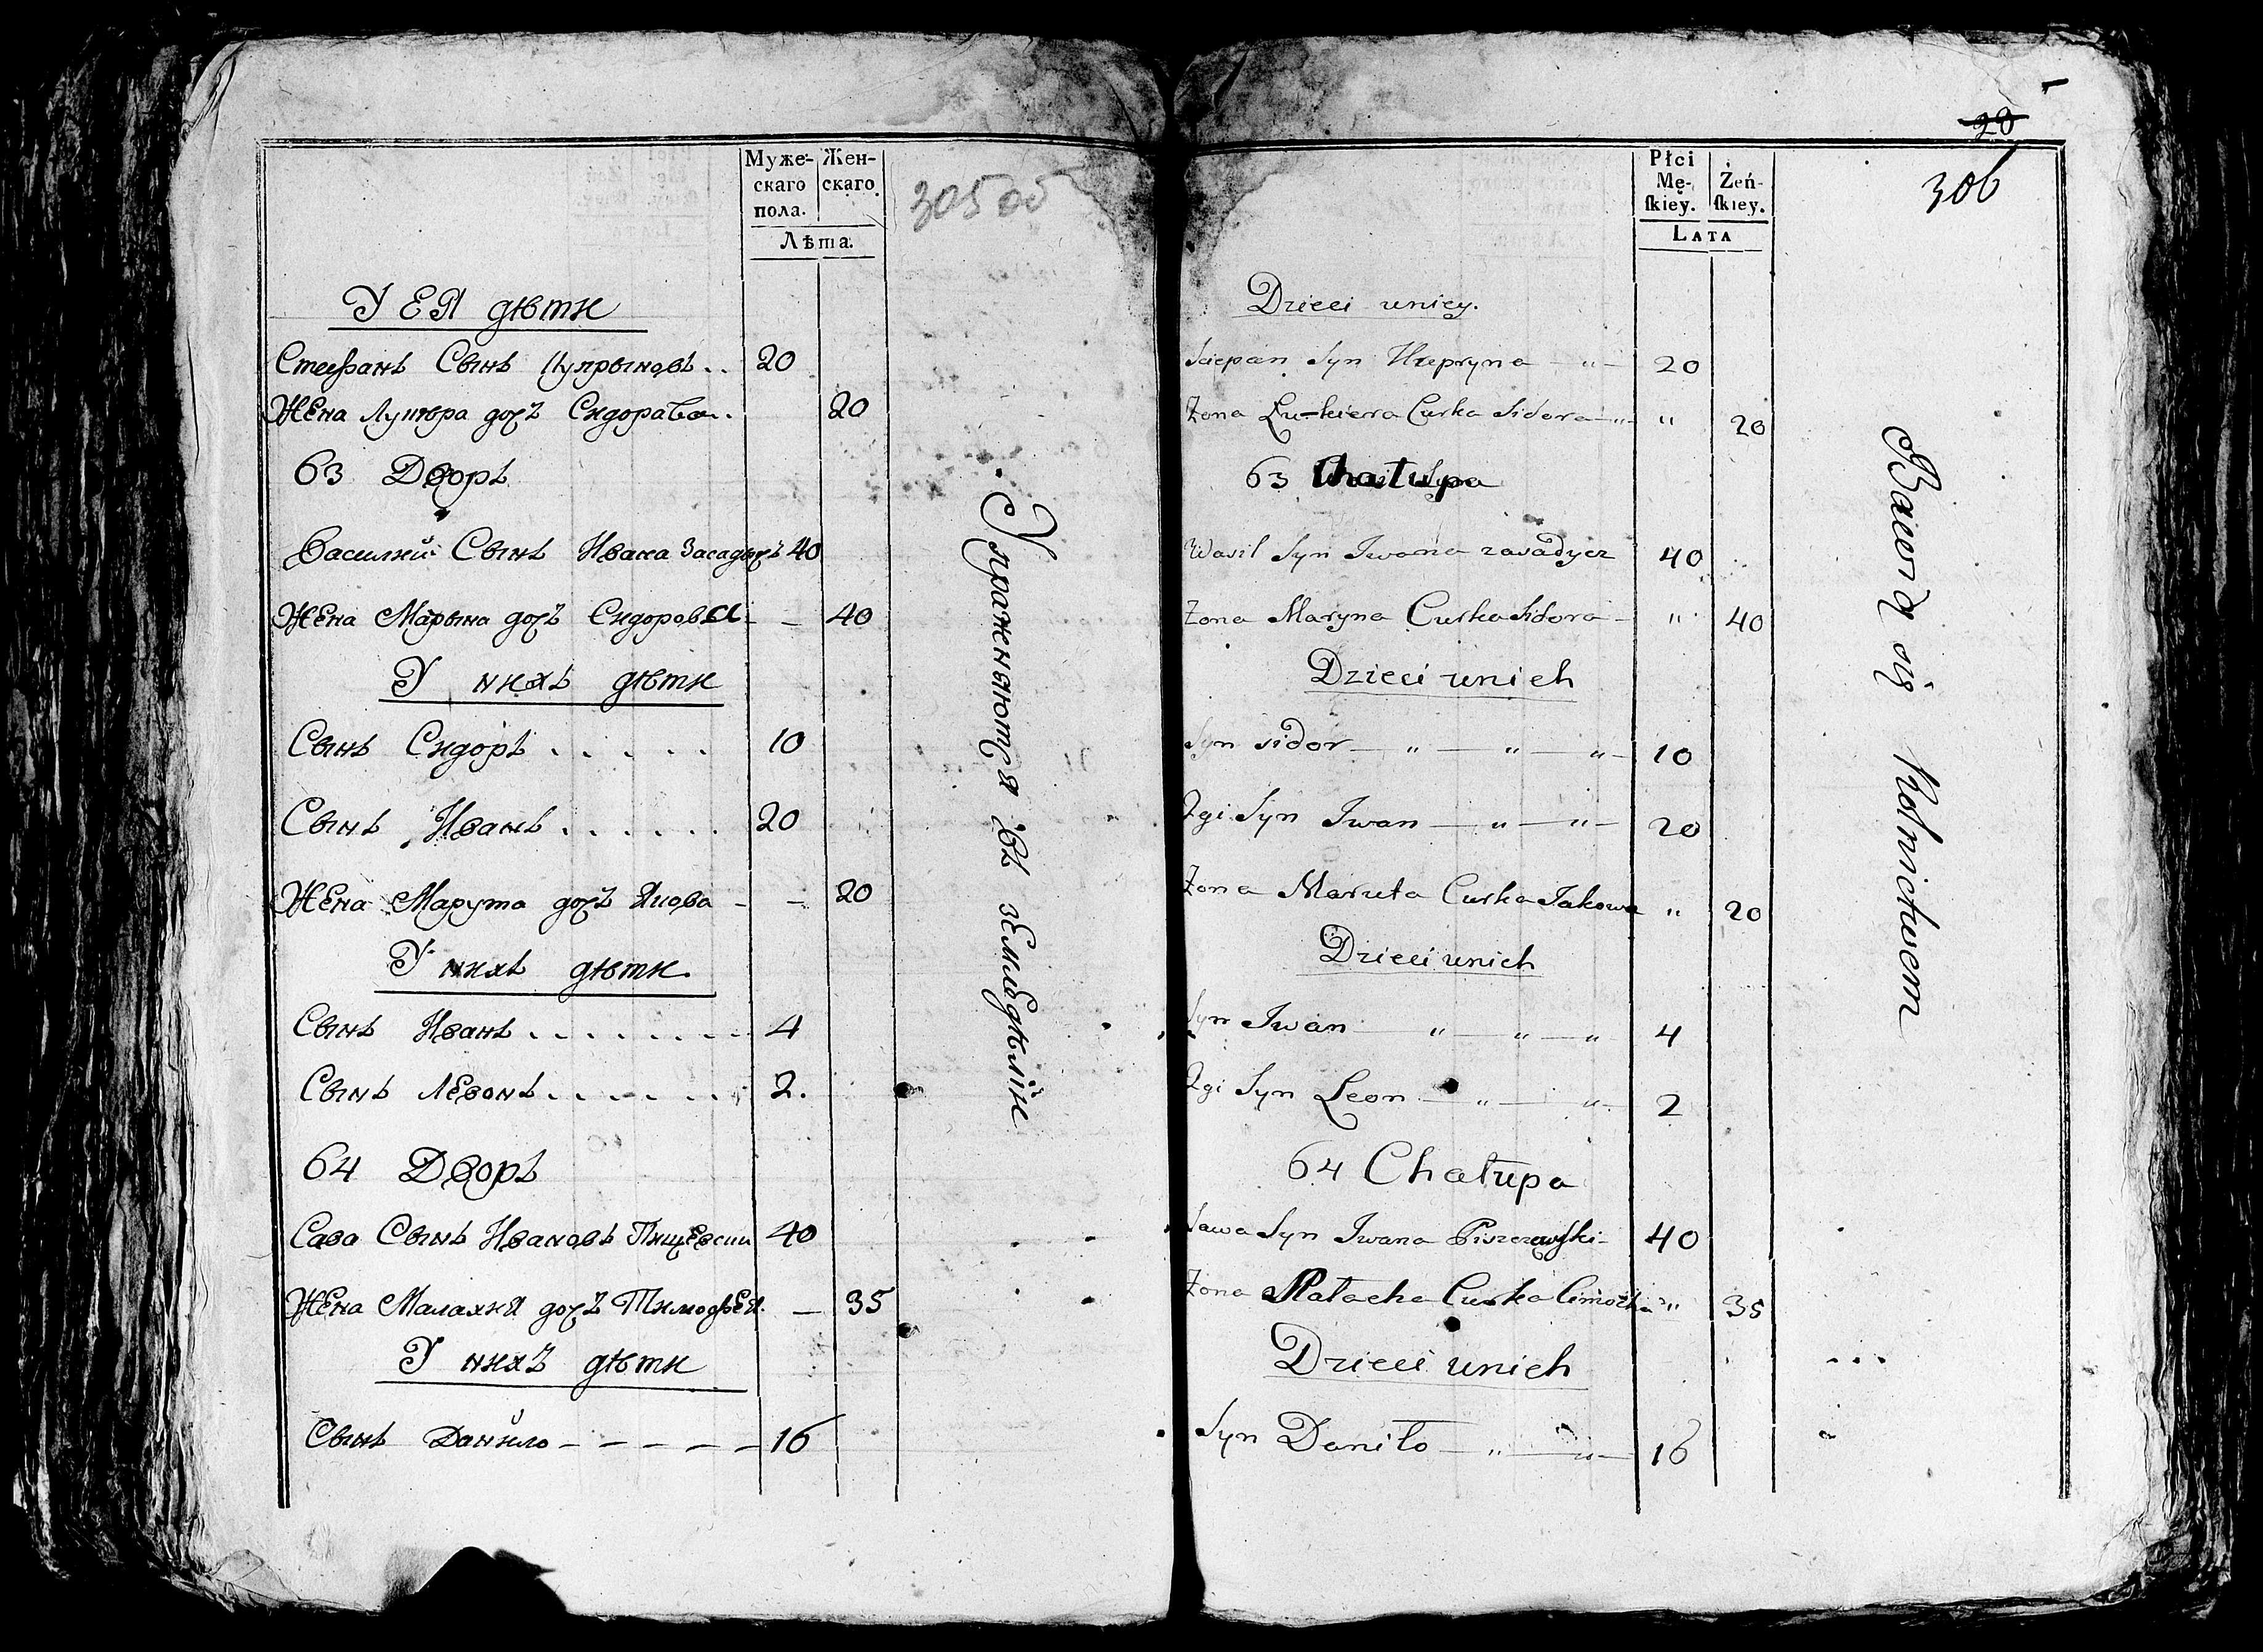 Муже-
скаго
пола.
Жен-
скаго
Лѣта.
305 об
У ЕЯ дѣти
Стефанъ Сынъ Цупрыновъ . . 20
Жена дочъ Сидорава . 20
63 Дворъ
Василий Сынъ Ивана Засадычъ 40
Жена Марына дочъ Сидорова - - 40
У нихъ дѣти
Сынъ Сидоръ . . . . . 10
Сынъ Иванъ . . . . . . 20
Жена Марута дочъ Якова - - 20
У нихъ дѣти
Сынъ Иванъ . . . . . . . 4
Сынъ Левонъ . . . . . . 2.
64 Дворъ
Сава Сынъ Ивановъ Пищевски 40
Жена Малахия дочъ Тимофея. - 35
У нихъ дѣти
Сынъ Данило - - - - - 16
Упражняются въ земледѣліи
Płci
Mę-
ſkiey.
Żeń-
ſkiey.
LATA
20
306
Dzieci unicy.
Sciepan Syn 20
Zona Curka Sidora " 20
63 Chatupa
Wasil Syn Iwana zasadycz 40
Zona Maryna Curka Sidora " 40
Dzieci unich
Syn Sidor " " " 10
2gi Syn Iwan " " 20
Zona Maruta Curka Jakowa " 20
Dzieci unich
Syn Iwan " " " 4
2gi Syn Leon " " 2
64 Chatupa
Sawa Syn Iwana Piszczewski 40
Zona Curka " 35
Dzieci unich
Syn Daniło " " 16
Bawią się Rolnictwem